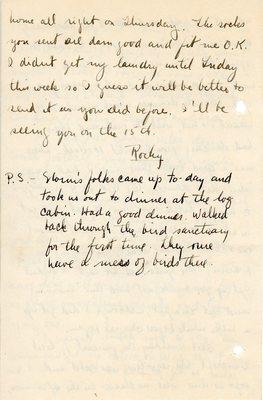 home all right on Thursday. The socks
you sent are darn good and fit me O.K.
I didnt get my laundry until Friday
this week so I guess it will be better to
send it as you did before. I'll be
seeing you on the 15th.
Rocky
P.S. - Storm's folks came up to-day and
took us out to dinner at the log
cabin. Had a good dinner. Walked
back through the bird sanctuary
for the first time. They sure
have a mess of birds there.